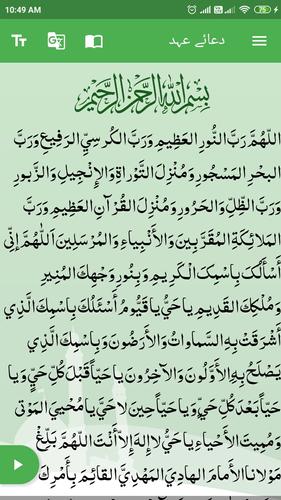 10:49 AM
دعائے عہد
بِسْمِ اللهِ الرَّحْمٰنِ الرَّحِيْمِ
اَللّٰهُمَّ رَبَّ النُّورِ الْعَظِيْمِ وَرَبَّ الْكُرْسِيِّ الرَّفِيْعِ وَرَبَّ
الْبَحْرِ الْمَسْجُوْرِ وَمُنْزِلَ التَّوْرَاةِ وَالْإِنْجِيْلِ وَالزَّبُوْرِ
وَرَبَّ الظِّلِّ وَالْحَرُوْرِ وَمُنْزِلَ الْقُرْآنِ الْعَظِيْمِ وَرَبَّ
الْمَلَائِكَةِ الْمُقَرَّبِيْنَ وَالْأَنْبِيَاءِ وَالْمُرْسَلِيْنَ اَللّٰهُمَّ إِنِّي
أَسْأَلُكَ بِاسْمِكَ الْكَرِيْمِ وَبِنُوْرِ وَجْهِكَ الْمُنِيْرِ
وَمُلْكِكَ الْقَدِيْمِ يَا حَيُّ يَا قَيُّوْمُ أَسْئَلُكَ بِاسْمِكَ الَّذِي
أَشْرَقَتْ بِهِ السَّمَاوَاتُ وَالْأَرَضُوْنَ وَبِاسْمِكَ الَّذِي
يَصْلَحُ بِهِ الْأَوَّلُوْنَ وَالْآخِرُوْنَ يَا حَيّاً قَبْلَ كُلِّ حَيٍّ وَيَا
حَيّاً بَعْدَ كُلِّ حَيٍّ وَيَا حَيّاً حِيْنَ لَا حَيَّ يَا مُحْيِيَ الْمَوْتى
وَمُمِيْتَ الْأَحْيَاءِ يَا حَيُّ لَا إِلهَ إِلَّا أَنْتَ اَللّٰهُمَّ بَلِّغْ
مَوْلَانَا الْأِمَامَ الْهَادِيَ الْمَهْدِيَّ الْقَائِمَ بِأَمْرِكَ